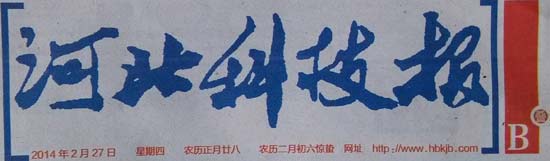 河北科技报
B
2014年2月27日 星期四 农历正月廿八 农历二月初六惊蛰 网址 http://www.hbkjb.com